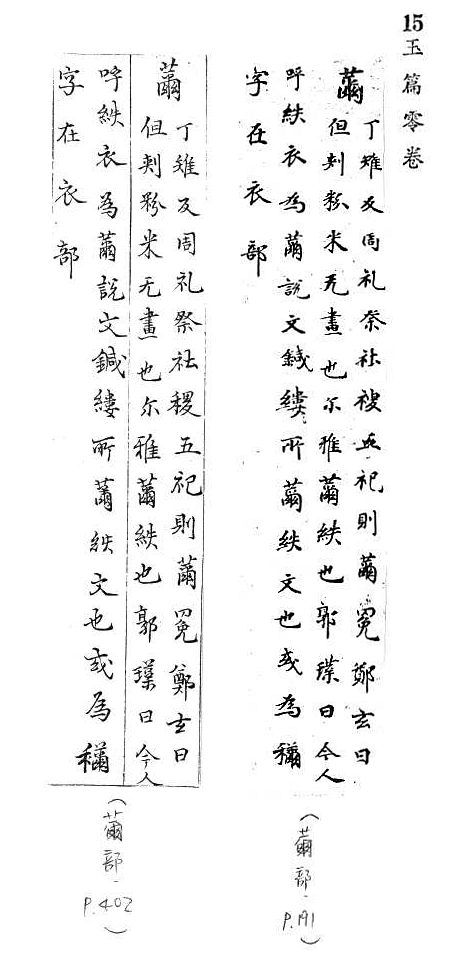 15 玉篇零卷
黹
丁雉反周礼祭社稷五祀則黹冕鄭玄曰
但刺粉米无畫也尓雅黹紩也郭璞曰今人
呼紩衣為黹說文鍼縷所黹紩文也或為襧
字在衣部
(黹部 P.191)
黹
丁雉反周礼祭社稷五祀則黹冕鄭玄曰
但刺粉米无畫也尓雅黹紩也郭璞曰今人
呼紩衣為黹說文鍼縷所黹紩文也或為襧
字在衣部
(黹部 P.402)